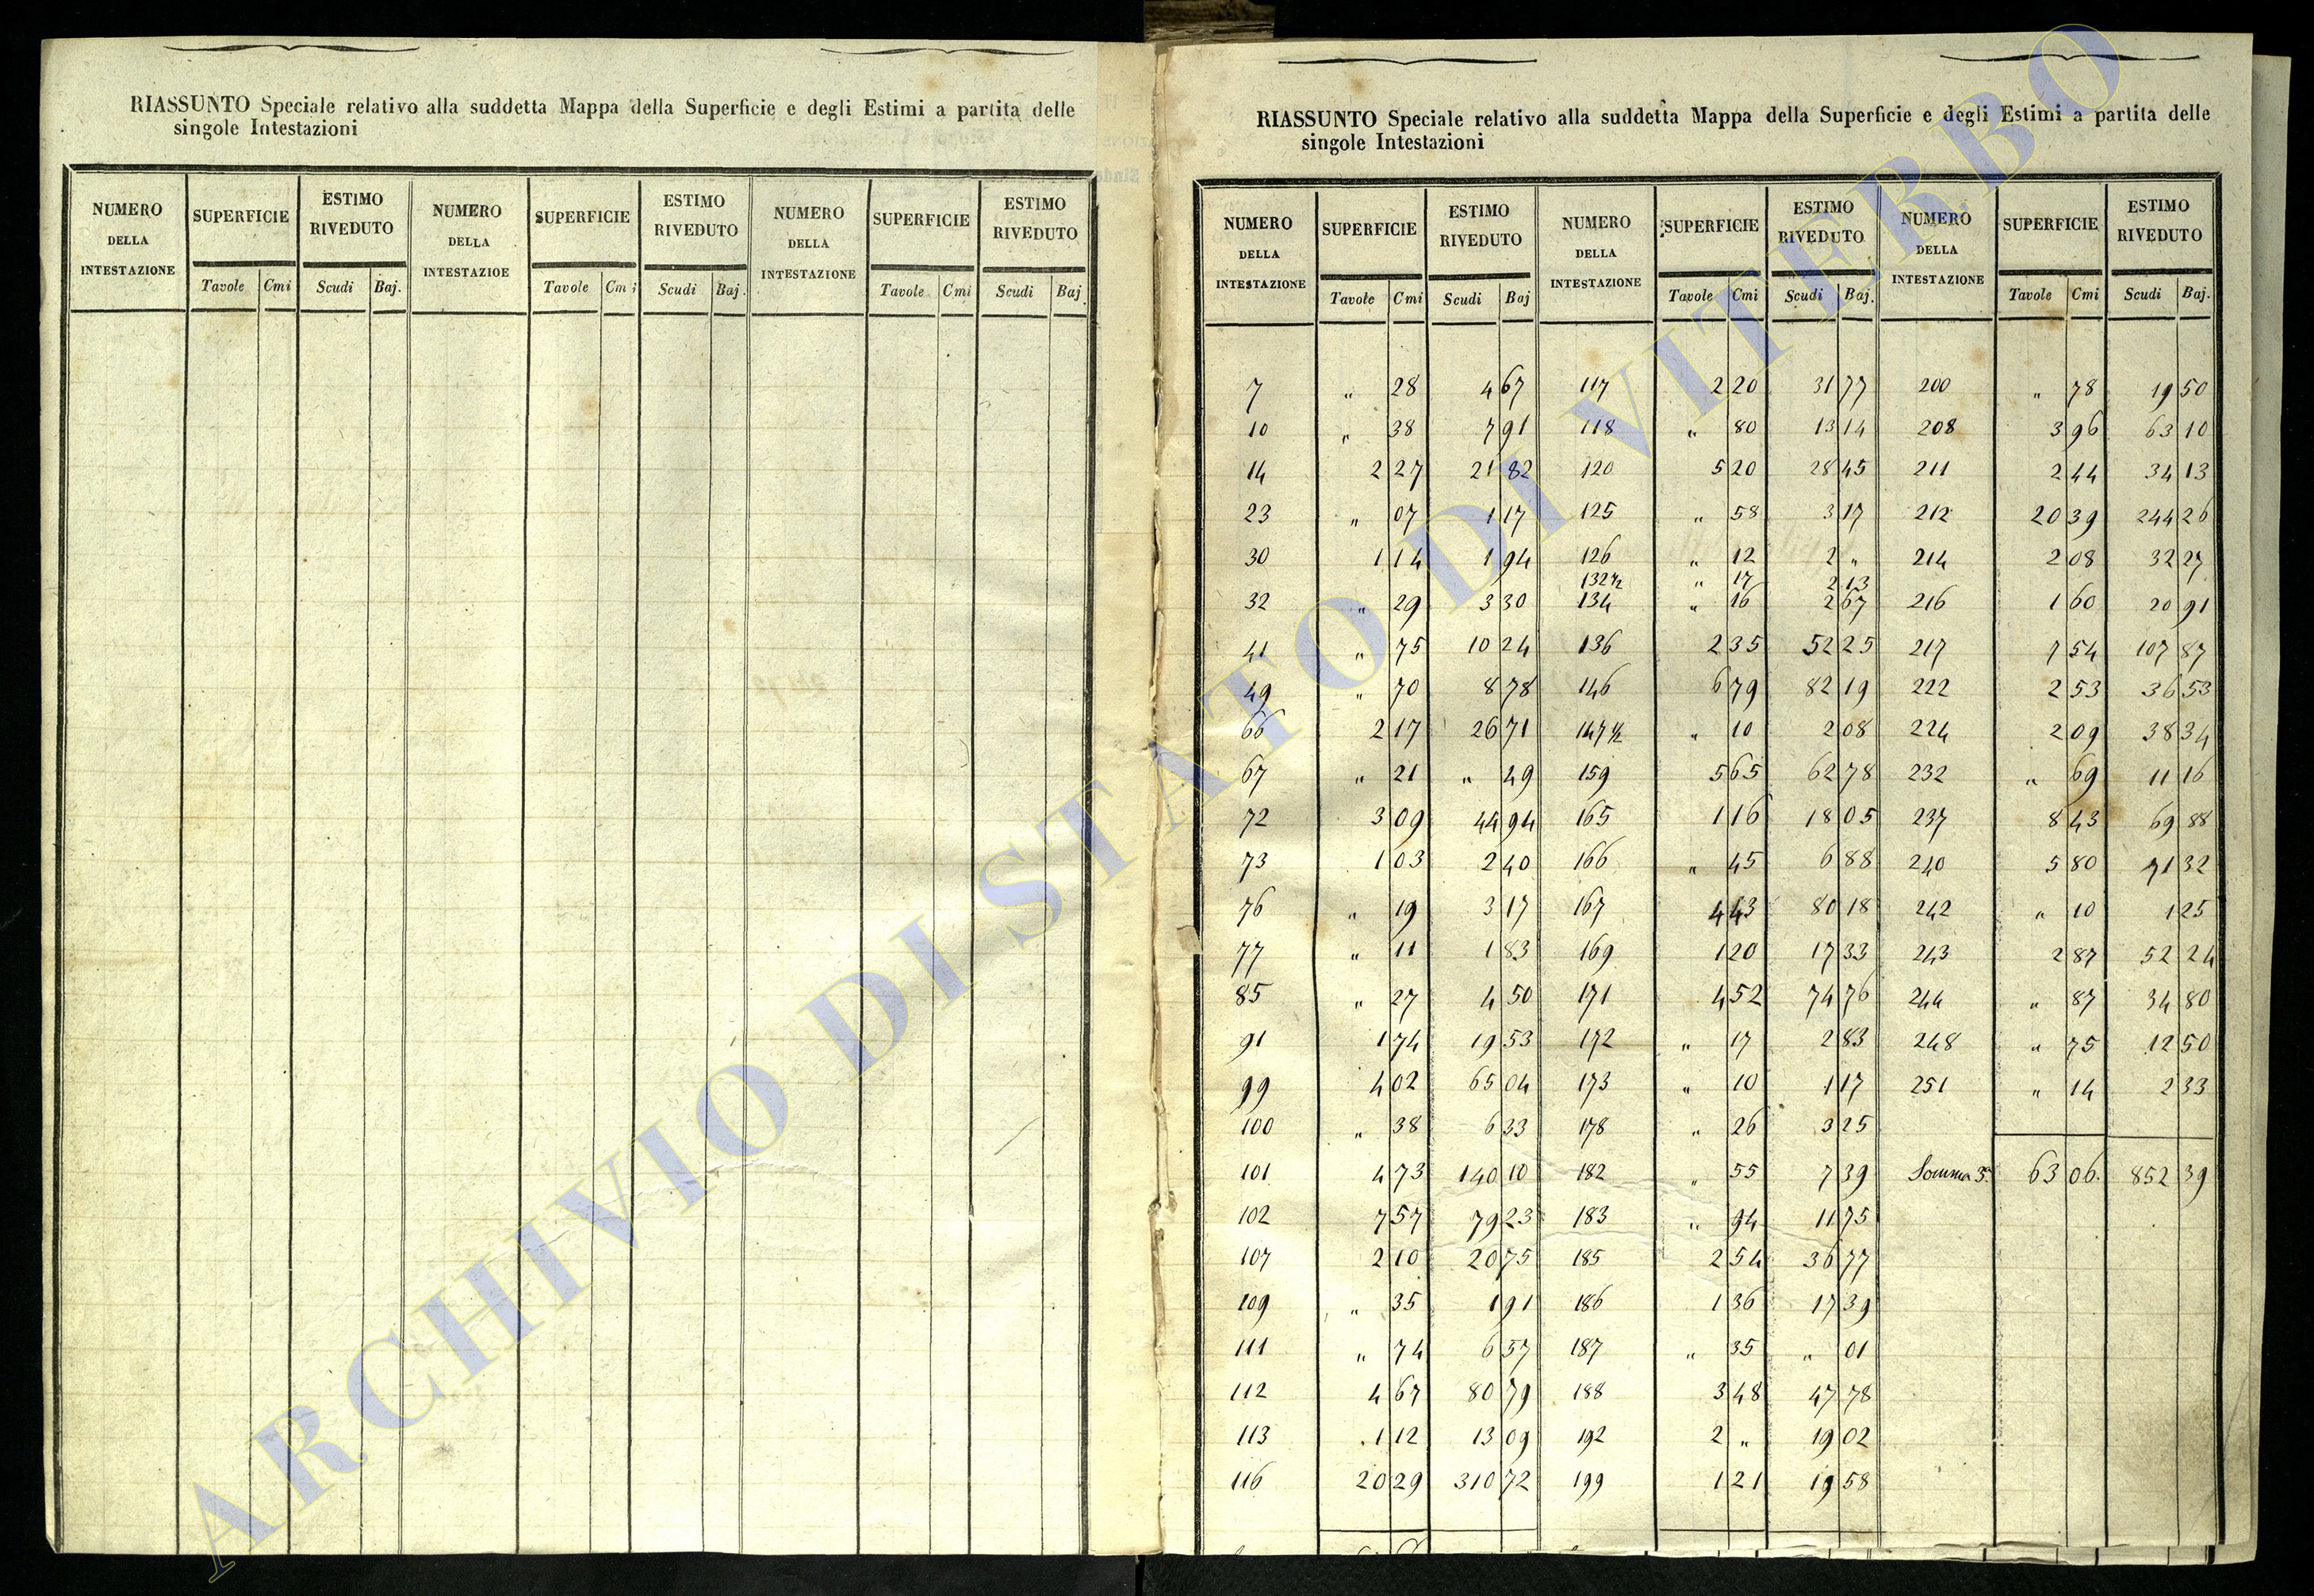 RIASSUNTO Speciale relativo alla suddetta Mappa della Superficie e degli Estimi a partita delle
singole Intestazioni
NUMERO DELLA INTESTAZIONE SUPERFICIE ESTIMO RIVEDUTO NUMERO DELLA INTESTAZIOE SUPERFICIE ESTIMO RIVEDUTO NUMERO DELLA INTESTAZIONE SUPERFICIE ESTIMO RIVEDUTO
Tavole Cmi Scudi Baj. Tavole Cmi Scudi Baj. Tavole Cmi Scudi Baj.
RIASSUNTO Speciale relativo alla suddetta Mappa della Superficie e degli Estimi a partita delle
singole Intestazioni
NUMERO DELLA INTESTAZIONE SUPERFICIE ESTIMO RIVEDUTO NUMERO DELLA INTESTAZIONE SUPERFICIE ESTIMO RIVEDUTO NUMERO DELLA INTESTAZIONE SUPERFICIE ESTIMO RIVEDUTO
Tavole Cmi Scudi Baj Tavole Cmi Scudi Baj. Tavole Cmi Scudi Baj.
7 " 28 4 67 117 2 20 31 77 200 " 78 19 50
10 " 38 7 91 118 " 80 13 14 208 3 96 63 10
14 2 27 21 82 120 5 20 28 45 211 2 44 34 13
23 " 07 1 17 125 " 58 3 17 212 20 39 244 26
30 1 14 1 94 126 " 12 2 " 214 2 08 32 27
132 1/2 " 17 2 13
32 " 29 3 30 134 " 16 2 67 216 1 60 20 91
41 " 75 10 24 136 2 35 52 25 217 7 54 107 87
49 " 70 8 78 146 6 79 82 19 222 2 53 36 53
66 2 17 26 71 147 1/2 " 10 2 08 224 2 09 38 34
67 " 21 " 49 159 5 65 62 78 232 " 69 11 16
72 3 09 44 94 165 1 16 18 05 237 8 43 69 88
73 1 03 2 40 166 " 45 6 88 240 5 80 71 32
76 " 19 3 17 167 4 43 80 18 242 " 10 1 25
77 " 11 1 83 169 1 20 17 33 243 2 87 52 24
85 " 27 4 50 171 4 52 74 76 244 " 87 34 80
91 1 74 19 53 172 " 17 2 83 248 " 75 12 50
99 4 02 65 04 173 " 10 1 17 251 " 14 2 33
100 " 38 6 33 178 " 26 3 25
101 4 73 140 10 182 " 55 7 39 Somma 3ª 63 06 852 39
102 7 57 79 23 183 " 94 11 75
107 2 10 20 75 185 2 54 36 77
109 " 35 1 91 186 1 36 17 39
111 " 74 6 57 187 " 35 " 01
112 4 67 80 79 188 3 48 47 78
113 1 12 13 09 192 2 " 19 02
116 20 29 310 72 199 1 21 19 58
ARCHIVIO DI STATO DI VITERBO